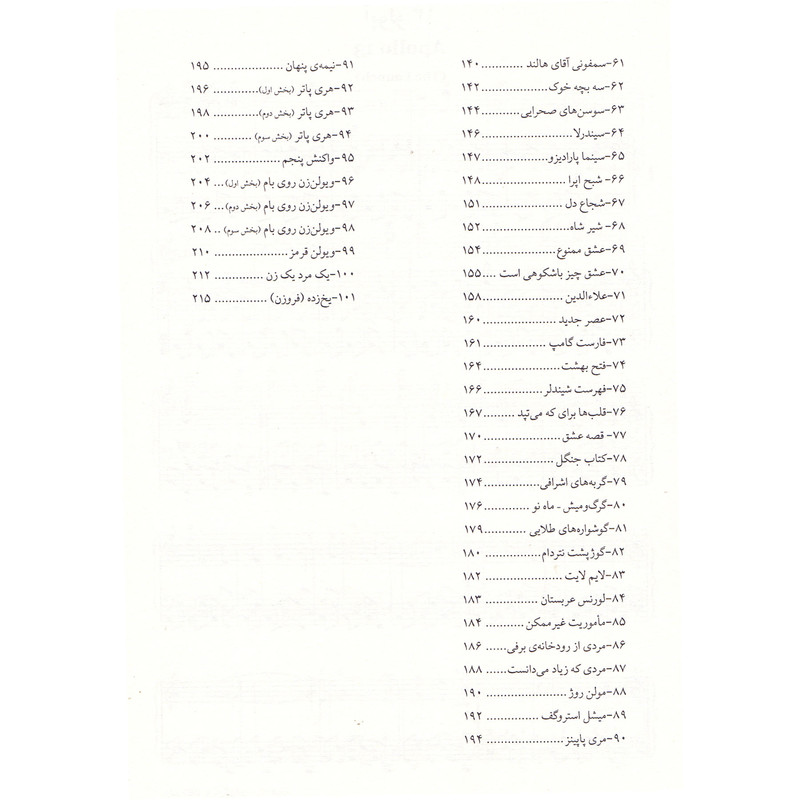 ۶۱-سمفونی آقای هالند ............ ۱۴۰
۶۲-سه بچه خوک................... ۱۴۲
۶۳-سوسن‌های صحرایی........... ۱۴۴
۶۴-سیندرلا........................ ۱۴۶
۶۵-سینما پارادیزو................... ۱۴۷
۶۶- شبح اپرا ........................ ۱۴۸
۶۷-شجاع دل ....................... ۱۵۱
۶۸- شیر شاه........................ ۱۵۲
۶۹-عشق ممنوع ................... ۱۵۴
۷۰-عشق چیز باشکوهی است .... ۱۵۵
۷۱-علاءالدین ....................... ۱۵۸
۷۲-عصر جدید ..................... ۱۶۰
۷۳-فارست گامپ .................. ۱۶۱
۷۴-فتح بهشت...................... ۱۶۴
۷۵-فهرست شیندلر ................ ۱۶۶
۷۶-قلب‌ها برای که می‌تپد ......... ۱۶۷
۷۷- قصه عشق...................... ۱۷۰
۷۸-کتاب جنگل .................... ۱۷۲
۷۹-گربه‌های اشرافی................ ۱۷۴
۸۰-گرگ‌ومیش - ماه نو ............. ۱۷۶
۸۱-گوشواره‌های طلایی ............ ۱۷۹
۸۲-گوژپشت نتردام................ ۱۸۰
۸۳-لایم لایت ...................... ۱۸۲
۸۴-لورنس عربستان ............... ۱۸۳
۸۵-مأموریت غیرممکن ........... ۱۸۴
۸۶-مردی از رودخانه‌ی برفی...... ۱۸۶
۸۷-مردی که زیاد می‌دانست...... ۱۸۸
۸۸-مولن روژ ....................... ۱۹۰
۸۹-میشل استروگف ............... ۱۹۲
۹۰-مری پاپینز ...................... ۱۹۴
۹۱-نیمه‌ی پنهان .................... ۱۹۵
۹۲-هری پاتر (بخش اول)............. ۱۹۶
۹۳-هری پاتر (بخش دوم)............. ۱۹۸
۹۴-هری پاتر (بخش سوم) ........... ۲۰۰
۹۵-واکنش پنجم ................... ۲۰۲
۹۶-ویولن‌زن روی بام (بخش اول)... ۲۰۴
۹۷-ویولن‌زن روی بام (بخش دوم)... ۲۰۶
۹۸-ویولن‌زن روی بام (بخش سوم) .. ۲۰۸
۹۹-ویولن قرمز..................... ۲۱۰
۱۰۰-یک مرد یک زن .............. ۲۱۲
۱۰۱-یخ‌زده (فروزن) ............... ۲۱۵